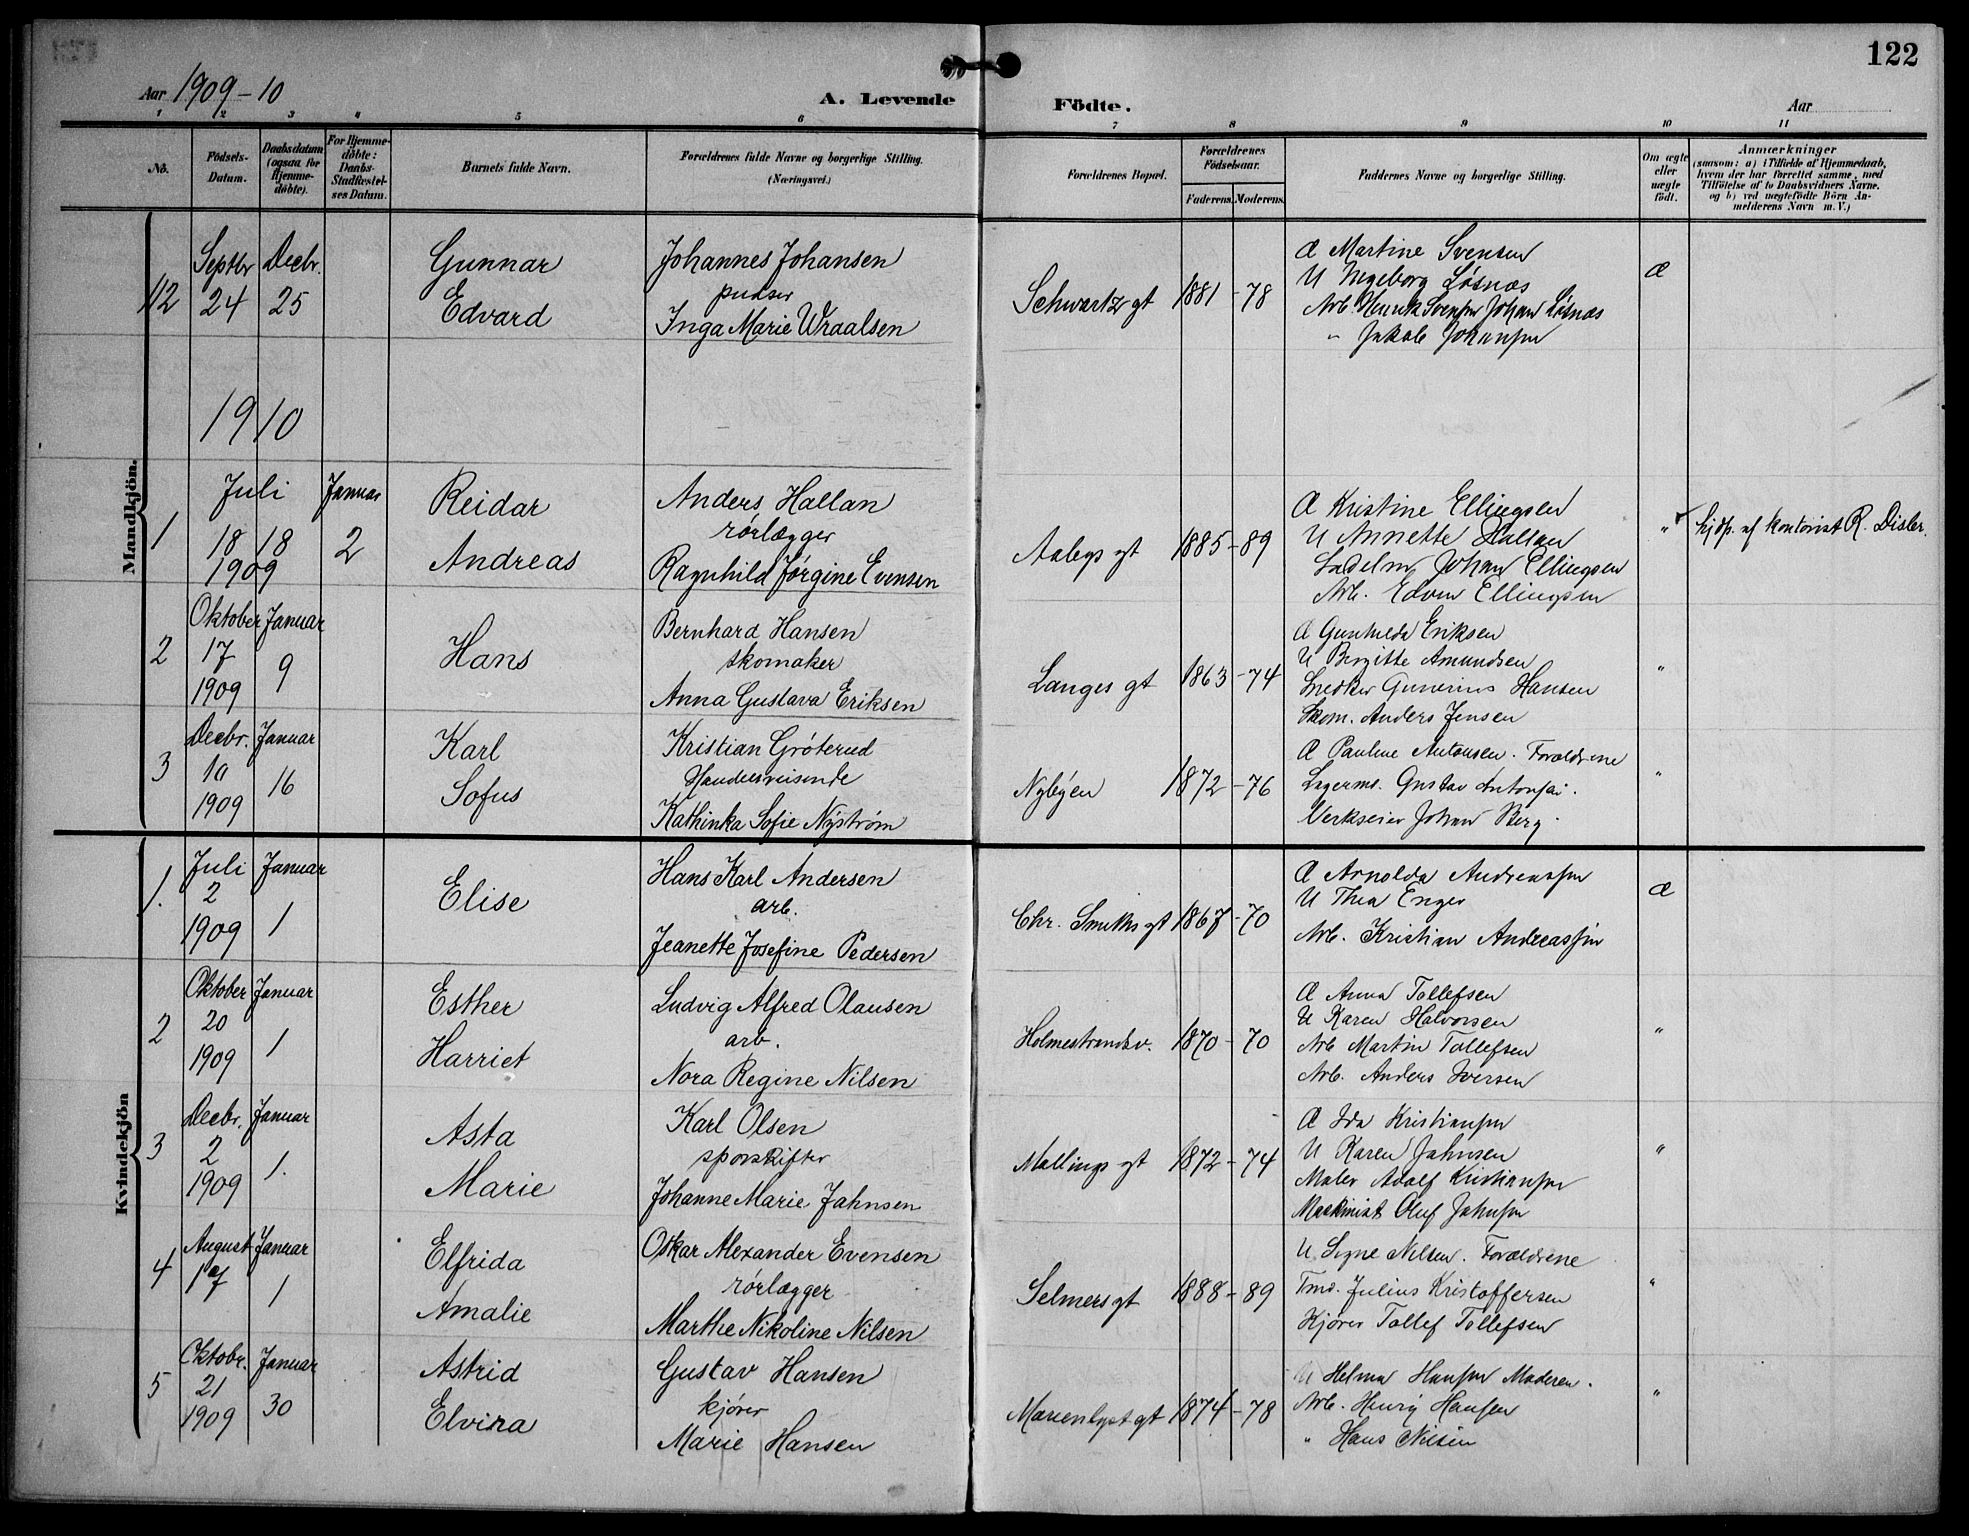 122
Aar 1909-10
A. Levende Födte.
Aar
1 2 3 4 5 6 7 8 9 10 11
No.
Födsels-Datum.
Daabsdatum (ogsaa for Hjemme-döbte).
For Hjemme-döbte: Daabs-Stadfæstel-ses Datum.
Barnets fulde Navn.
Forældrenes fulde Navne og borgerlige Stilling. (Næringsvei.)
Forældrenes Bopæl.
Forældrenes Födselsaar.
Faderens. Moderens.
Faddernes Navne og borgerlige Stilling.
Om ægte eller uægte födt.
Anmærkninger
(saasom: a) i Tilfælde af Hjemmedaab, hvem der har forrettet samme, med Tilföielse af to Daabsvidners Navne. og b) ved uægtefödte Börn An-melderens Navn m. V.)
Mandkjön.
112
Septbr 24
Decbr. 25
Gunnar
Edvard
Johannes Johansen
pudser
Inga Marie Wraalsen
Schwartz gt
1881 - 78
Æ Martine Svensen
U Ingeborg Løsnæs
Arb. Henrik Svensen Johan Løsnæs
" Jakob Johansen
Æ
1910
1
Juli
18 18
1909
Januar
2
Reidar
Andreas
Anders Hallan
rørlægger
Ragnhild Jørgine Evensen
Aabys gt
1885 - 89
Æ Kristine Ellingsen
U Annette Hallan
Johan Ellingsen
Arb. Edvin Ellingsen
"
hjdp. af kontorist R. Disler.
2
Oktober 17 1909
Januar 9
Hans
Bernhard Hansen
skomaker
Anna Gustava Eriksen
Langes gt
1863 - 74
Æ Gunhilda Eriksen
U Birgitte Amundsen
Snedker Gunerius Hansen
Skom. Anders Jensen
"
3
Decbr. 10 1909
Januar 16
Karl
Sofus
Kristian Grøterud
Handelsreisende
Kathinka Sofie Nystrøm
Nybyen
1872 - 76
Æ Pauline Antonsen. Forældrene
Lagermd. Gustav Antonsen.
Verkseier Johan Berg.
"
Kvindekjön
1.
Juli 2 1909
Januar 1
Elise
Hans Karl Andersen
arb.
Jeanette Josefine Pedersen
Chr. Smiths gt
1867 - 70
Æ Arnolda Andreassen
U Thea Enger
Arb. Kristian Andreassen
Æ
2
Oktober 20 1909
Januar 1
Esther
Harriet
Ludvig Alfred Olausen
arb.
Nora Regine Nilsen
Holmestrandsv.
1870 - 70
Æ Anna Tollefsen
U Karen Halvorsen
Arb Martin Tollefsen
Arb. Anders Iversen
"
3
Decbr. 2 1909
Januar 1.
Asta
Marie
Karl Olsen
sporskifter
Johanne Marie Jahnsen
Mallings gt
1872 - 74
Æ Ida Kristiansen
U Karen Jahnsen
Maler Adolf Kristiansen
Maskinist Oluf Jahnsen
"
4
August 17
Januar 1
Elfrida
Amalie
Oskar Alexander Evensen
rørlægger
Marthe Nikoline Nilsen
Selmers gt
1888 - 89
U. Signe Nilsen. Forældrene
Tmd. Julius Kristoffersen
Kjører Tollef Tollefsen
"
5
Oktobr. 21 1909
Januar 30
Astrid
Elvira
Gustav Hansen
kjører
Marie Hansen
Marienlyst gt
1874 - 78
U Helma Hansen Moderen.
Arb. Henrig Hansen
" Hans Nilsen
"